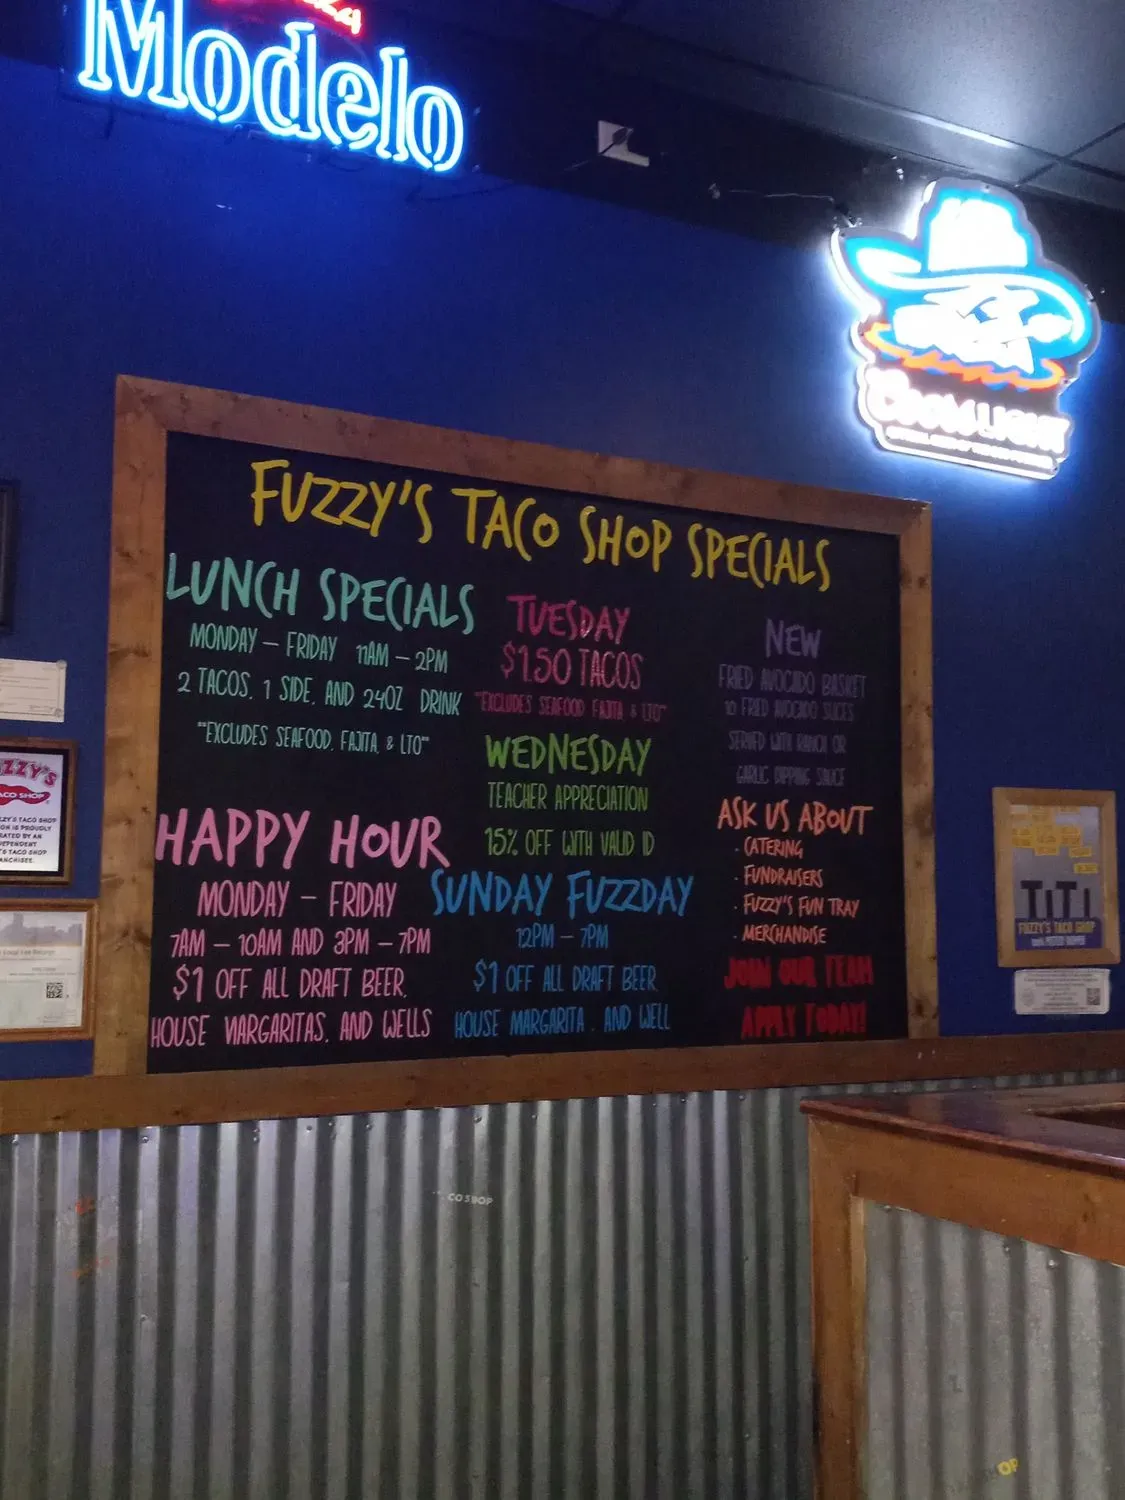 Modelo
COORS LIGHT
FUZZY'S TACO SHOP SPECIALS
LUNCH SPECIALS
MONDAY – FRIDAY 11AM – 2PM
2 TACOS, 1 SIDE, AND 24OZ DRINK
**EXCLUDES SEAFOOD, FAJITA, & LTO**
HAPPY HOUR
MONDAY – FRIDAY
7AM – 10AM AND 3PM – 7PM
$1 OFF ALL DRAFT BEER,
HOUSE MARGARITAS, AND WELLS
TUESDAY
$1.50 TACOS
**EXCLUDES SEAFOOD FAJITA, & LTO**
WEDNESDAY
TEACHER APPRECIATION
15% OFF WITH VALID ID
SUNDAY FUZZDAY
12PM – 7PM
$1 OFF ALL DRAFT BEER,
HOUSE MARGARITA , AND WELL
NEW
FRIED AVOCADO BASKET
10 FRIED AVOCADO SLICES
SERVED WITH RANCH OR
GARLIC DIPPING SAUCE
ASK US ABOUT
· CATERING
· FUNDRAISERS
· FUZZY'S FUN TRAY
· MERCHANDISE
JOIN OUR TEAM
APPLY TODAY!
ZZY'S
ACO SHOP
ZZY'S TACO SHOP
ON IS PROUDLY
RATED BY AN
DEPENDENT
'S TACO SHOP
ANCHISEE.
FUZZY'S TACO SHOP
CO SHOP